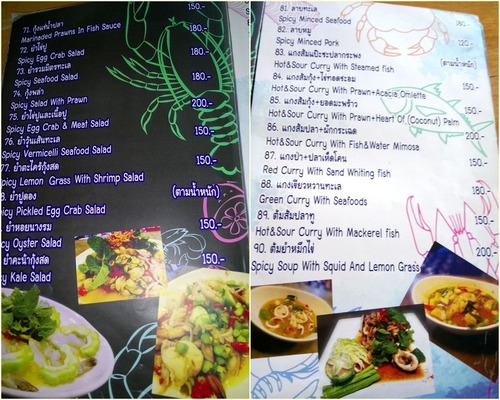 71. กุ้งแช่น้ำปลา
Marinaded Prawns In Fish Sauce 150.-
72. ยำไข่ปู
Spicy Egg Crab Salad 150.-
73. ยำรวมมิตรทะเล
Spicy Seafood Salad 150.-
74. กุ้งพล่า
Spicy Salad With Prawn 180.-
75. ยำไข่ปูและเนื้อปู
Spicy Egg Crab & Meat Salad 200.-
76. ยำวุ้นเส้นทะเล
Spicy Vermicelli Seafood Salad 150.-
77. ยำตะไคร้กุ้งสด
Spicy Lemon Grass With Shrimp Salad 150.-
ยำปูดอง
Spicy Pickled Egg Crab Salad (ตามน้ำหนัก)
ยำหอยนางรม
Spicy Oyster Salad 150.-
ยำคะน้ากุ้งสด
Kale Salad 150.-
81. ลาบทะเล
Spicy Minced Seafood 180.-
82. ลาบหมู
Spicy Minced Pork 120.-
83. แกงส้มแป๊ะซะปลากระพง
Hot&Sour Curry With Steamed fish (ตามน้ำหนัก)
84. แกงส้มกุ้ง+ไข่ทอดชะอม
Hot&Sour Curry With Prawn+Acacia Omlette 200.-
85. แกงส้มกุ้ง+ยอดมะพร้าว
Hot&Sour Curry With Prawn+Heart Of (Coconut) Palm 200.-
86. แกงส้มปลา+ผักกระเฉด
Hot&Sour Curry With Fish&Water Mimosa 150.-
87. แกงป่า+ปลาเห็ดโคน
Red Curry With Sand Whiting fish 150.-
88. แกงเขียวหวานทะเล
Green Curry With Seafoods 150.-
89. ต้มส้มปลาทู
Hot&Sour Curry With Mackerel fish 150.-
90. ต้มยำหมึกไข่
Spicy Soup With Squid And Lemon Grass 200.-